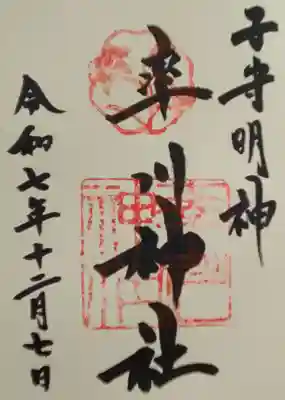 子守明神
率川神社
令和七年十二月七日